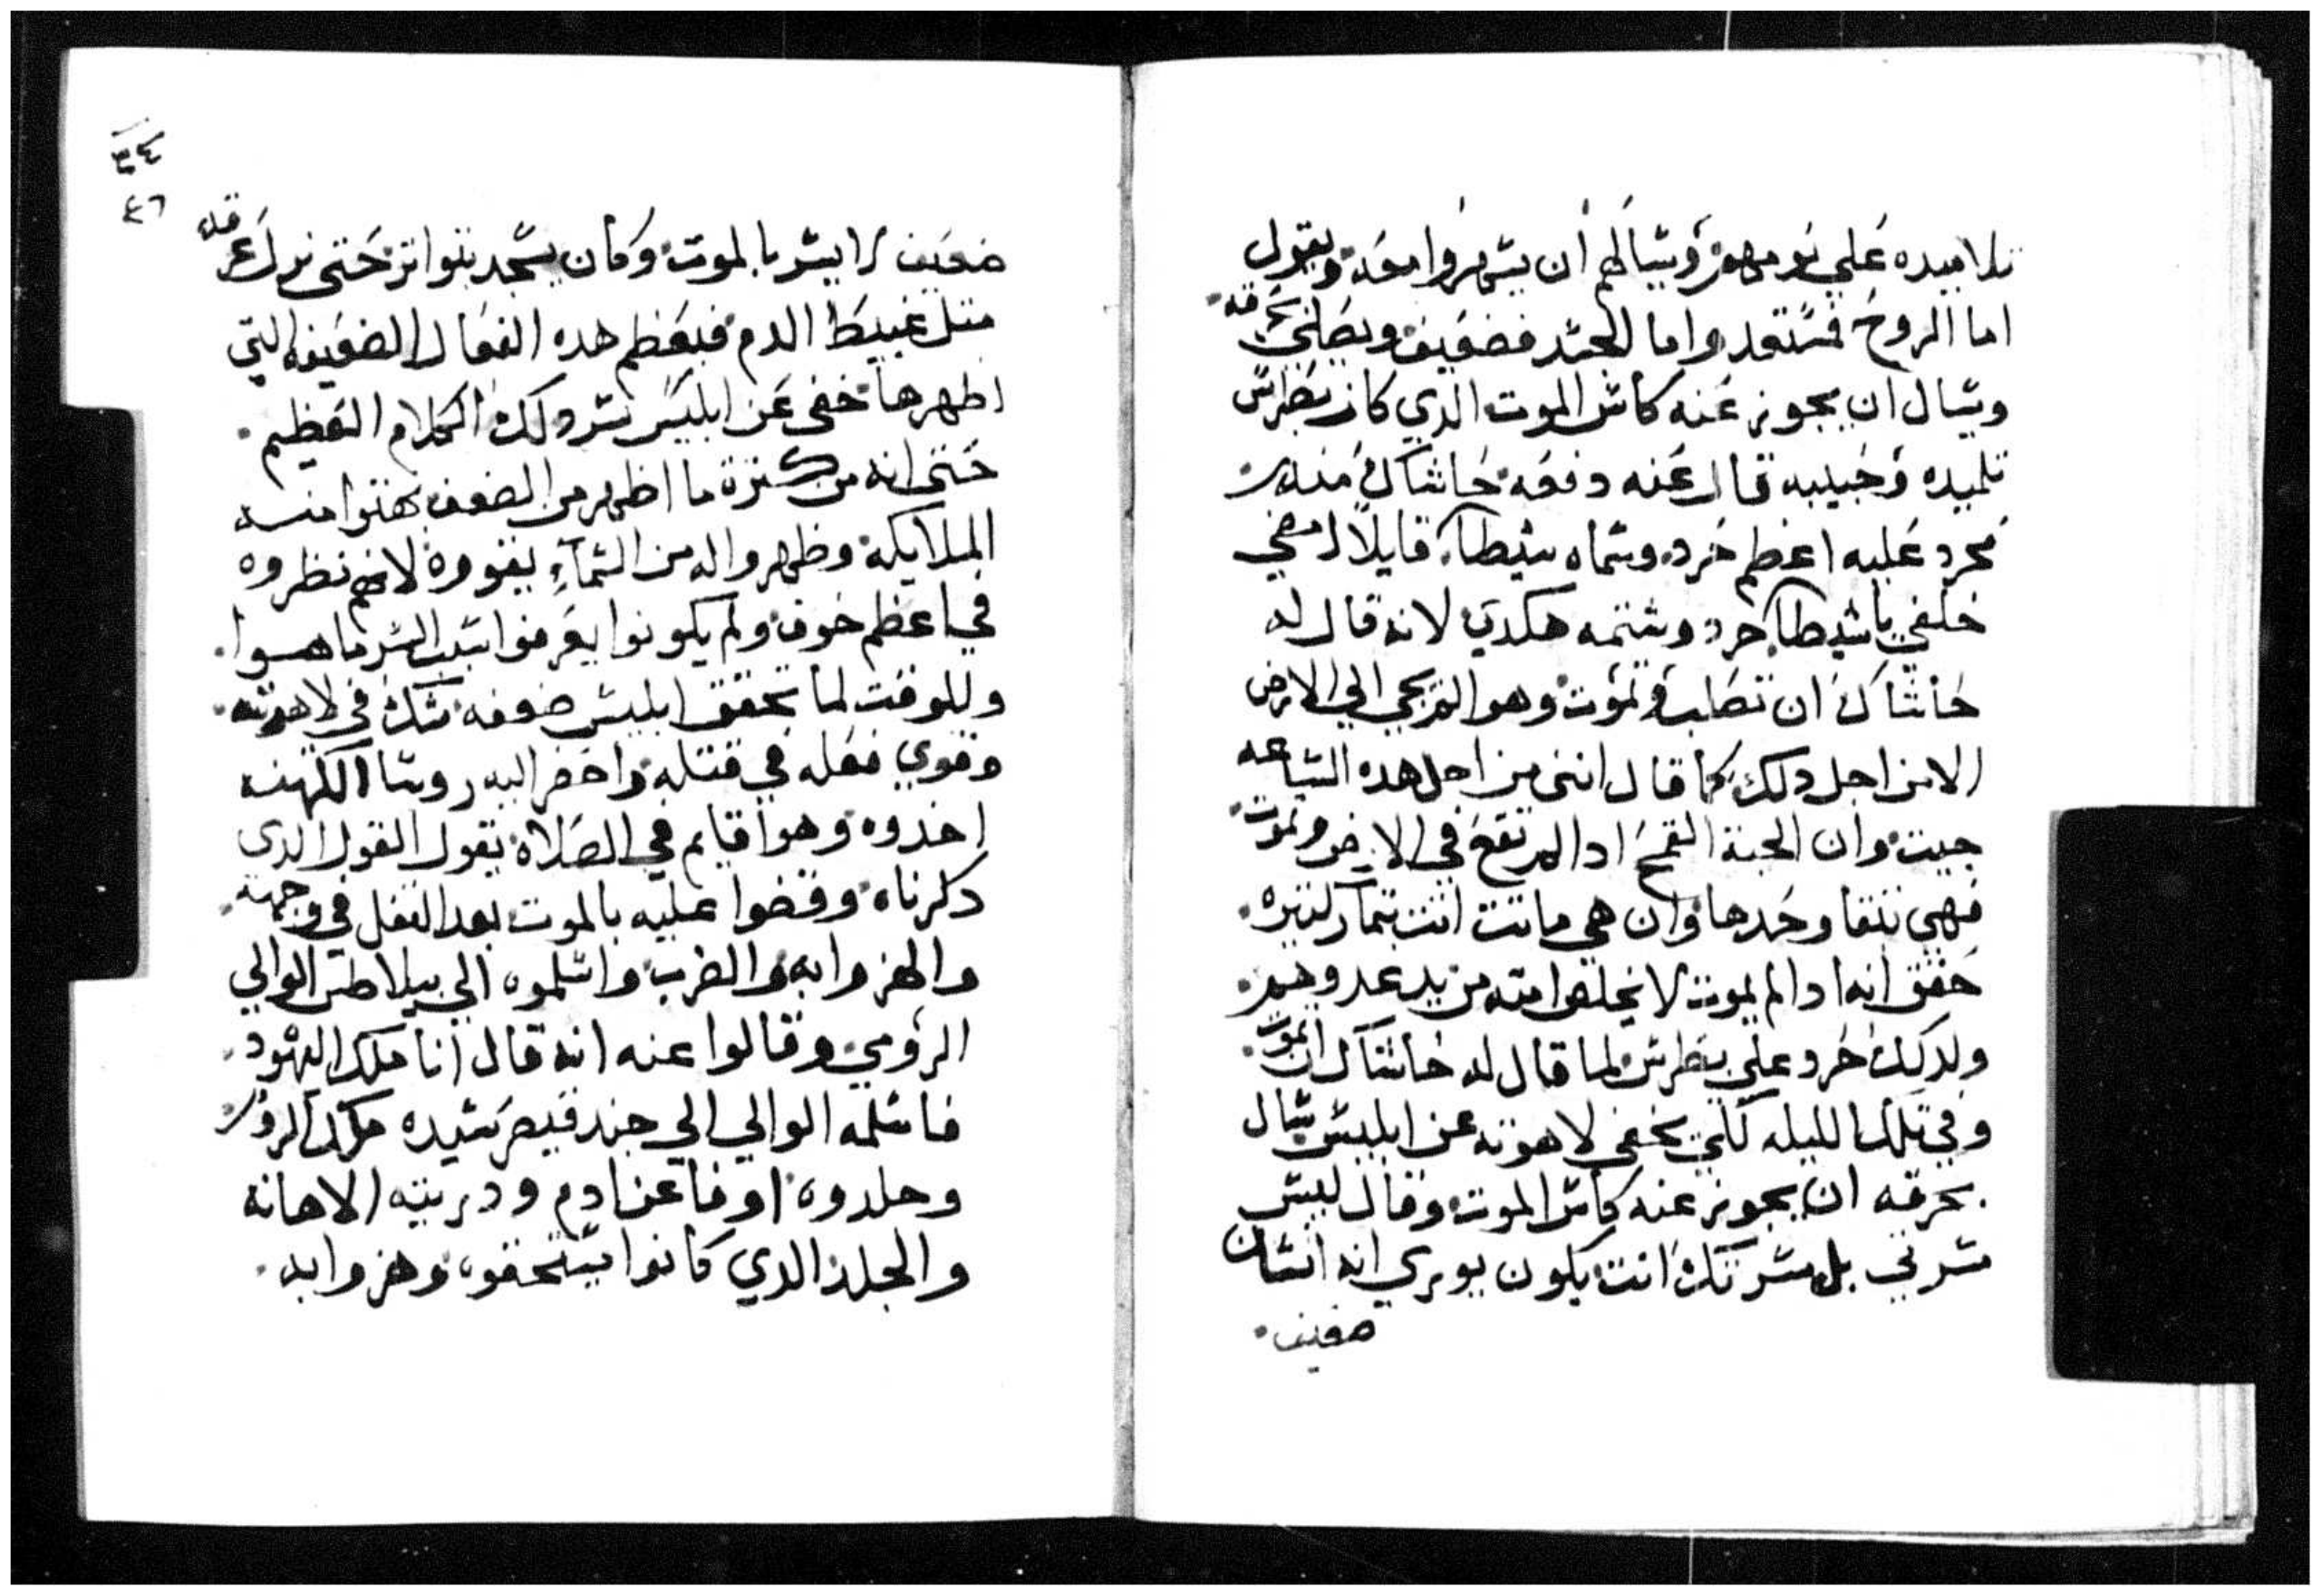 تلاميده علي نومهم ويسالهم ان يسهروا معه ويقول
اما الروح فمستعد واما الجسد فضعيف ويصلي بحرقه
ويسال ان يجوز عنه كاس الموت الدي كان بطرس
تلميده وحبيبه قال عنه دفعه حاشاك منه
حرد عليه اعظم حرد وسماه شيطان قايلا امضي
خلفي يا شيطان حرد وشتمه هكدي لانه قال له
حاشاك ان تصلب وتموت وهو لم يجي الي الارض
الا من اجل دلك كما قال انني من اجل هده الساعه
جيت وان الحبة القمح ادا لم تقع في الارض وتموت
فهي تبقا وحدها وان هي ماتت اتت بتمار كتيره
حقق انه ادا لم يموت لا يخلصوا امته من يد عدوهم
ولدلك حرد علي بطرس لما قال له حاشاك ان تموت
وفي تلك الليله لكي يخفي لاهوته عن ابليس سال
بحرقه ان يجوز عنه كاس الموت وقال ليس
مسرتي بل مسرتك انت يكون يوري انه انسان
ضعيف
٣٤
٤٦
ضعيف لا يسر بالموت وكان يسجد بتواتر حتى نزل عرقه
متل عبيط الدم فبعظم هده الفعال الضعيفه التي
اظهرها خفى عن ابليس سر دلك الكلام العظيم
حتى انه من كترة ما اظهر من الضعف بهتوا منه
الملايكه وظهروا له من السماء يقووه لانهم نظروه
في اعظم خوف ولم يكونوا يعرفوا سبب السر ما هوا
وللوقت لما تحقق ابليس ضعفه شك في لاهوته
وقوي فعله في قتله واحضر اليه روسا الكهنه
اخدوه وهوا قايم في الصلاة يقول القول الدى
دكرناه وقضوا عليه بالموت بعد التفل في وجهه
والهزوا به والضرب واسلموه الي بيلاطس الوالي
الرومي وقالوا عنه انه قال انا ملك اليهود
فاسلمه الوالي الي جند قيصر سيده ملك الروم
وجلدوه اوفا عن ادم ودريته الاهانه
والجلد الدي كانوا يستحقوه وهزوا به